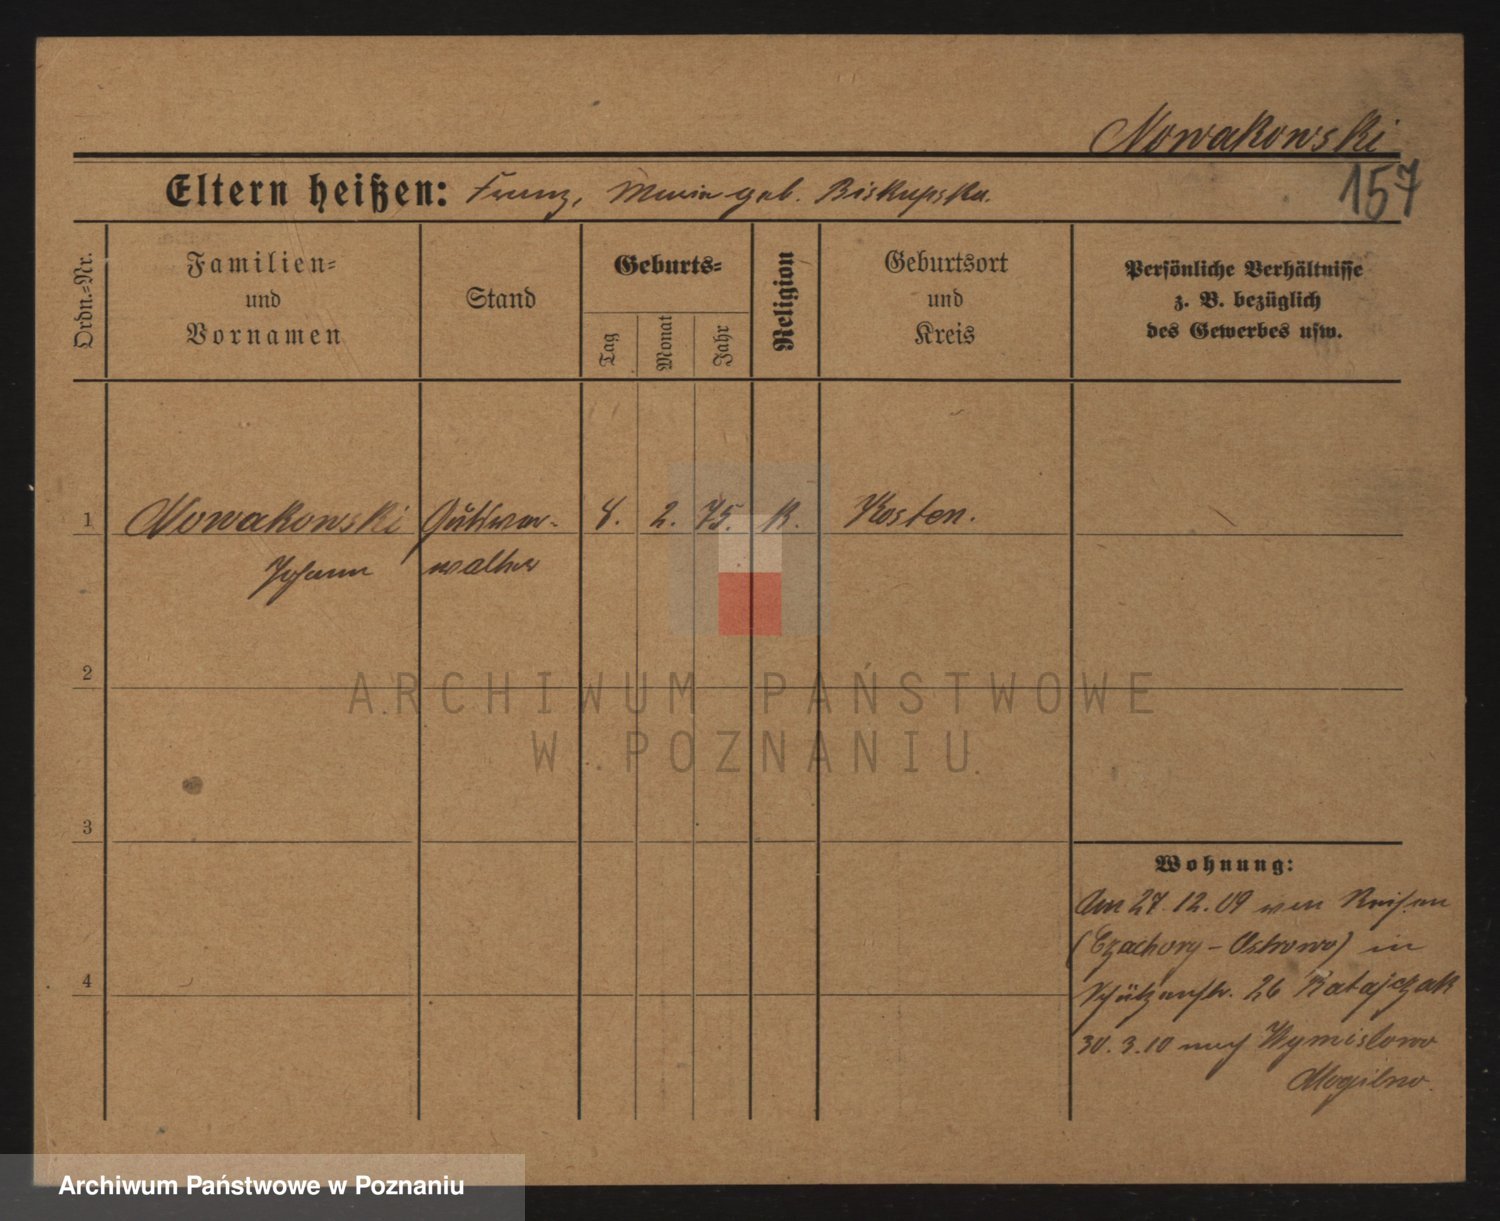 Nowakowski
157
Eltern heißen: Franz, Maria geb. Biskupska.
Ordn.-Nr.
Familien-
und
Vornamen
Stand
Geburts-
Tag
Monat
Jahr
Religion
Geburtsort
und
Kreis
Persönliche Verhältnisse
z. B. bezüglich
des Gewerbes usw.
1 Nowakowski Gutsver- 8. 2. 75. K. Kosten.
Johann walter
2
ARCHIWUM PAŃSTWOWE
W POZNANIU
3
Wohnung:
Am 27.12.09 von Reisen
(Czachory-Ostrowo) in
4
Schützenstr. 26 Ratajczak
30.3.10 nach Wymislowo
Mogilno.
Archiwum Państwowe w Poznaniu